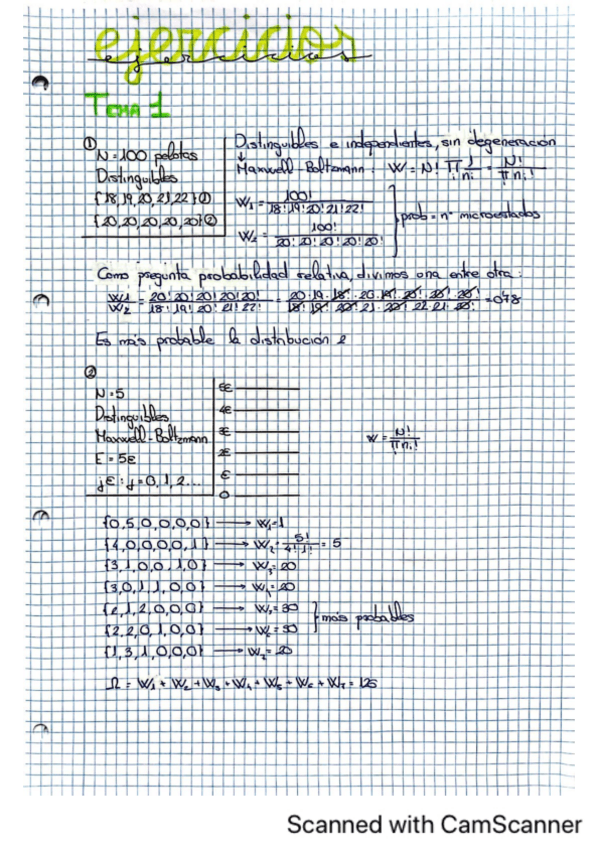 ejercicios
TEMA 1
①
N = 100 pelotas
Distinguibles
{18,19,20,21,22} ①
{20,20,20,20,20} ②
Distinguibles e independientes, sin degeneración
↓
Maxwell-Boltzmann: W = N! π 1/ni! = N!/π ni!
W1 = 100!/18! 19! 20! 21! 22!
W2 = 100!/20! 20! 20! 20! 20!
prob = nº microestados
Como pregunta probabilidad relativa, divimos una entre otra:
W1/W2 = 20! 20! 20! 20! 20!/18! 19! 20! 21! 22! = 20·19·18!·20·19!·20!·20!·20!/18! 19! 20! 21·20! 22·21·20! = 0'78
Es más probable la distribucion 2
②
N = 5
Distinguibles
Maxwell-Boltzmann
E = 5ε
jε : j = 0, 1, 2...
5ε
4ε
3ε
2ε
ε
0
W = N!/π ni!
{0,5,0,0,0,0} → W1 = 1
{4,0,0,0,0,1} → W2 = 5!/4! 1! = 5
{3,1,0,0,1,0} → W3 = 20
{3,0,1,1,0,0} → W4 = 20
{2,1,2,0,0,0} → W5 = 30
{2,2,0,1,0,0} → W6 = 30
más probables
{1,3,1,0,0,0} → W7 = 20
Ω = W1 + W2 + W3 + W4 + W5 + W6 + W7 = 126
Scanned with CamScanner